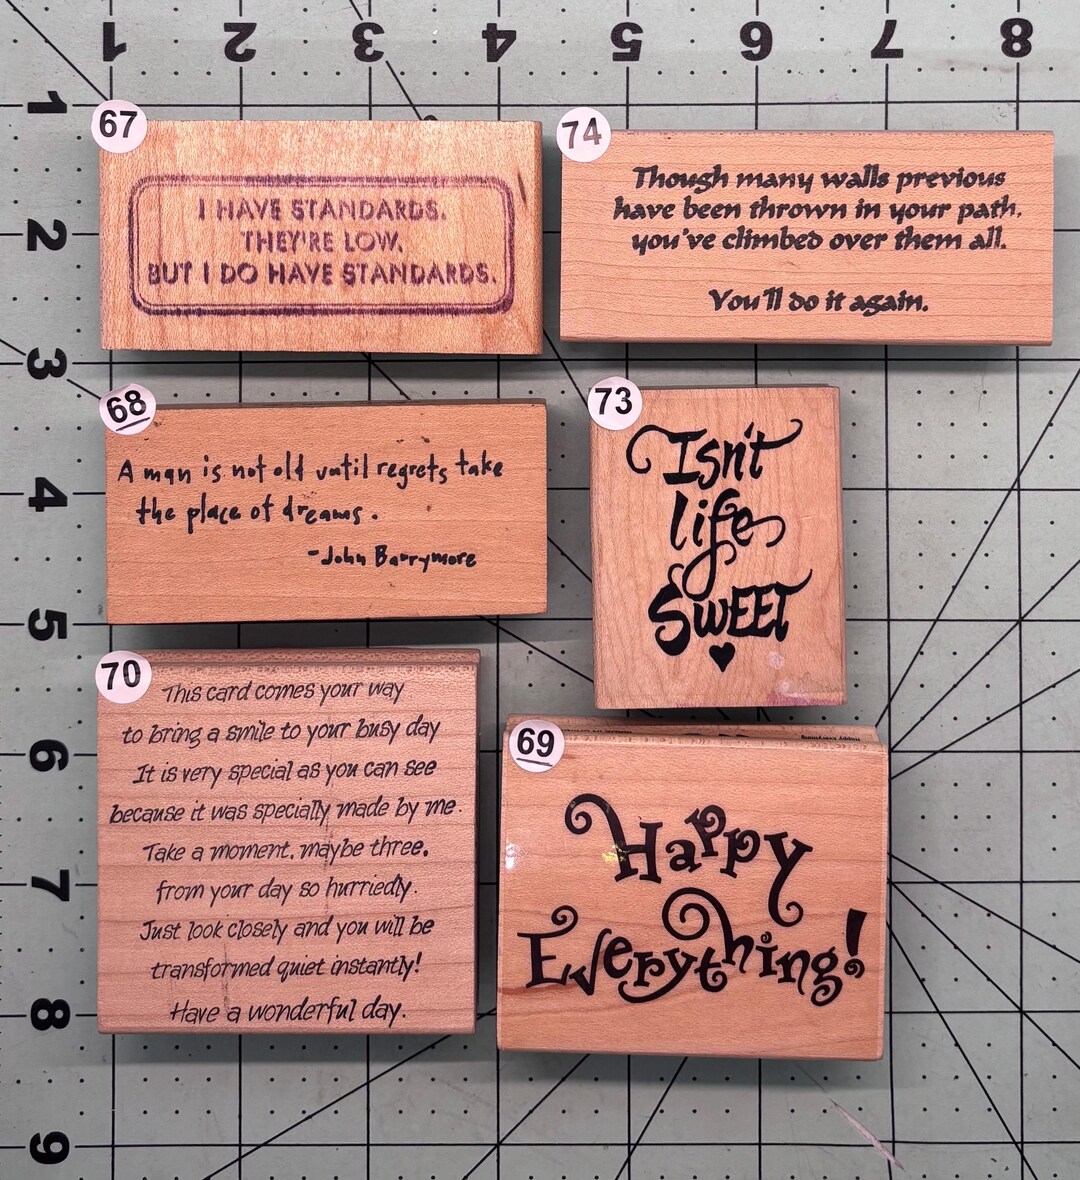 1 2 3 4 5 6 7 8
1
2
3
4
5
6
7
8
9
67
I HAVE STANDARDS.
THEY'RE LOW.
BUT I DO HAVE STANDARDS.
74
Though many walls previous
have been thrown in your path,
you've climbed over them all.
You'll do it again.
68
A man is not old until regrets take
the place of dreams.
-John Barrymore
73
Isn't
life
SWEET
70
This card comes your way
to bring a smile to your busy day
It is very special as you can see
because it was specially made by me.
Take a moment, maybe three,
from your day so hurriedly.
Just look closely and you will be
transformed quiet instantly!
Have a wonderful day.
69
Happy Everything
Happy
Everything!